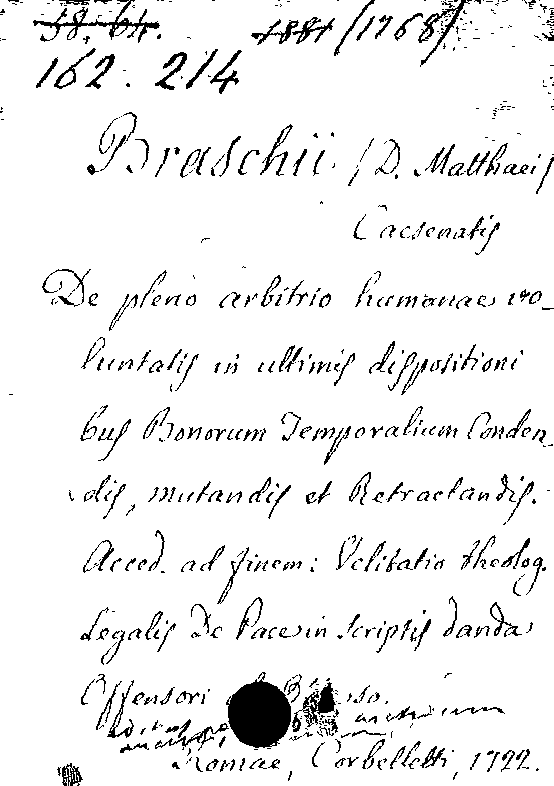 58. 64. 1881 (1768)
162. 214
Braschii /D. Matthaei/
Caesenatis
De pleno arbitrio humanae vo_
luntatis in ultimis dispositioni
bus Bonorum Temporalium Conden_
dis, mutandis et Retractandis.
Acced. ad finem: Velitatio theolog.
Legalis De Pace in scriptis danda
Offensori
Romae, Corbelletti, 1722.